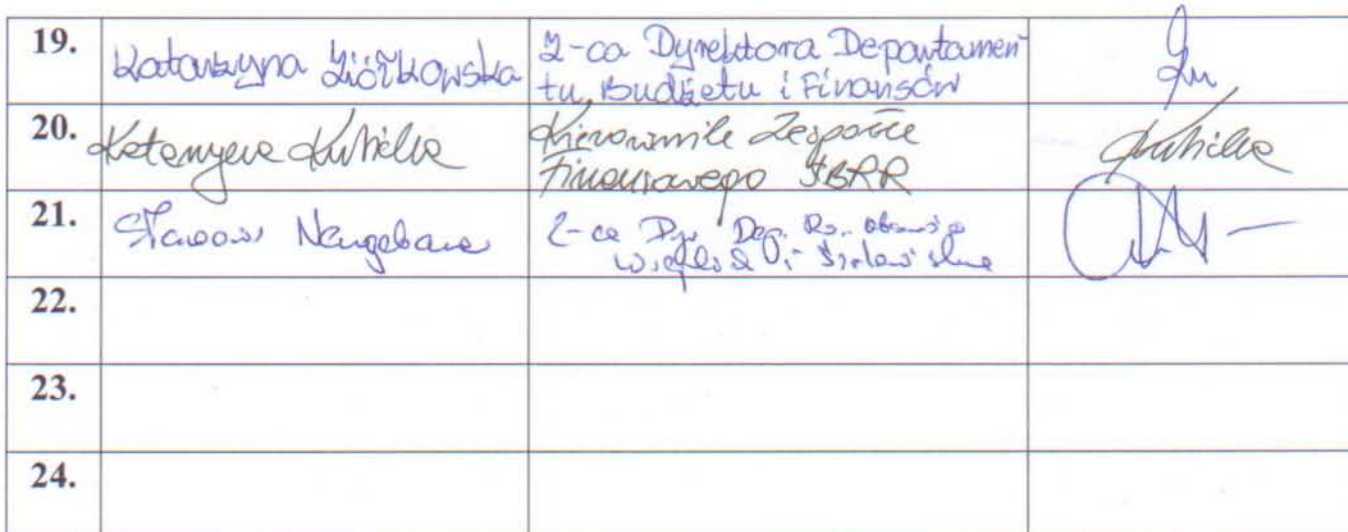 19. Katarzyna Ziółkowska Z-ca Dyrektora Departamen
tu Budżetu i Finansów
20. Katarzyna Kubicka Kierownik Zespołu
Finansowego ŚBRR Kubicka
21. Sławomir Neugebauer Z-ca Dyr. Dep.
22.
23.
24.